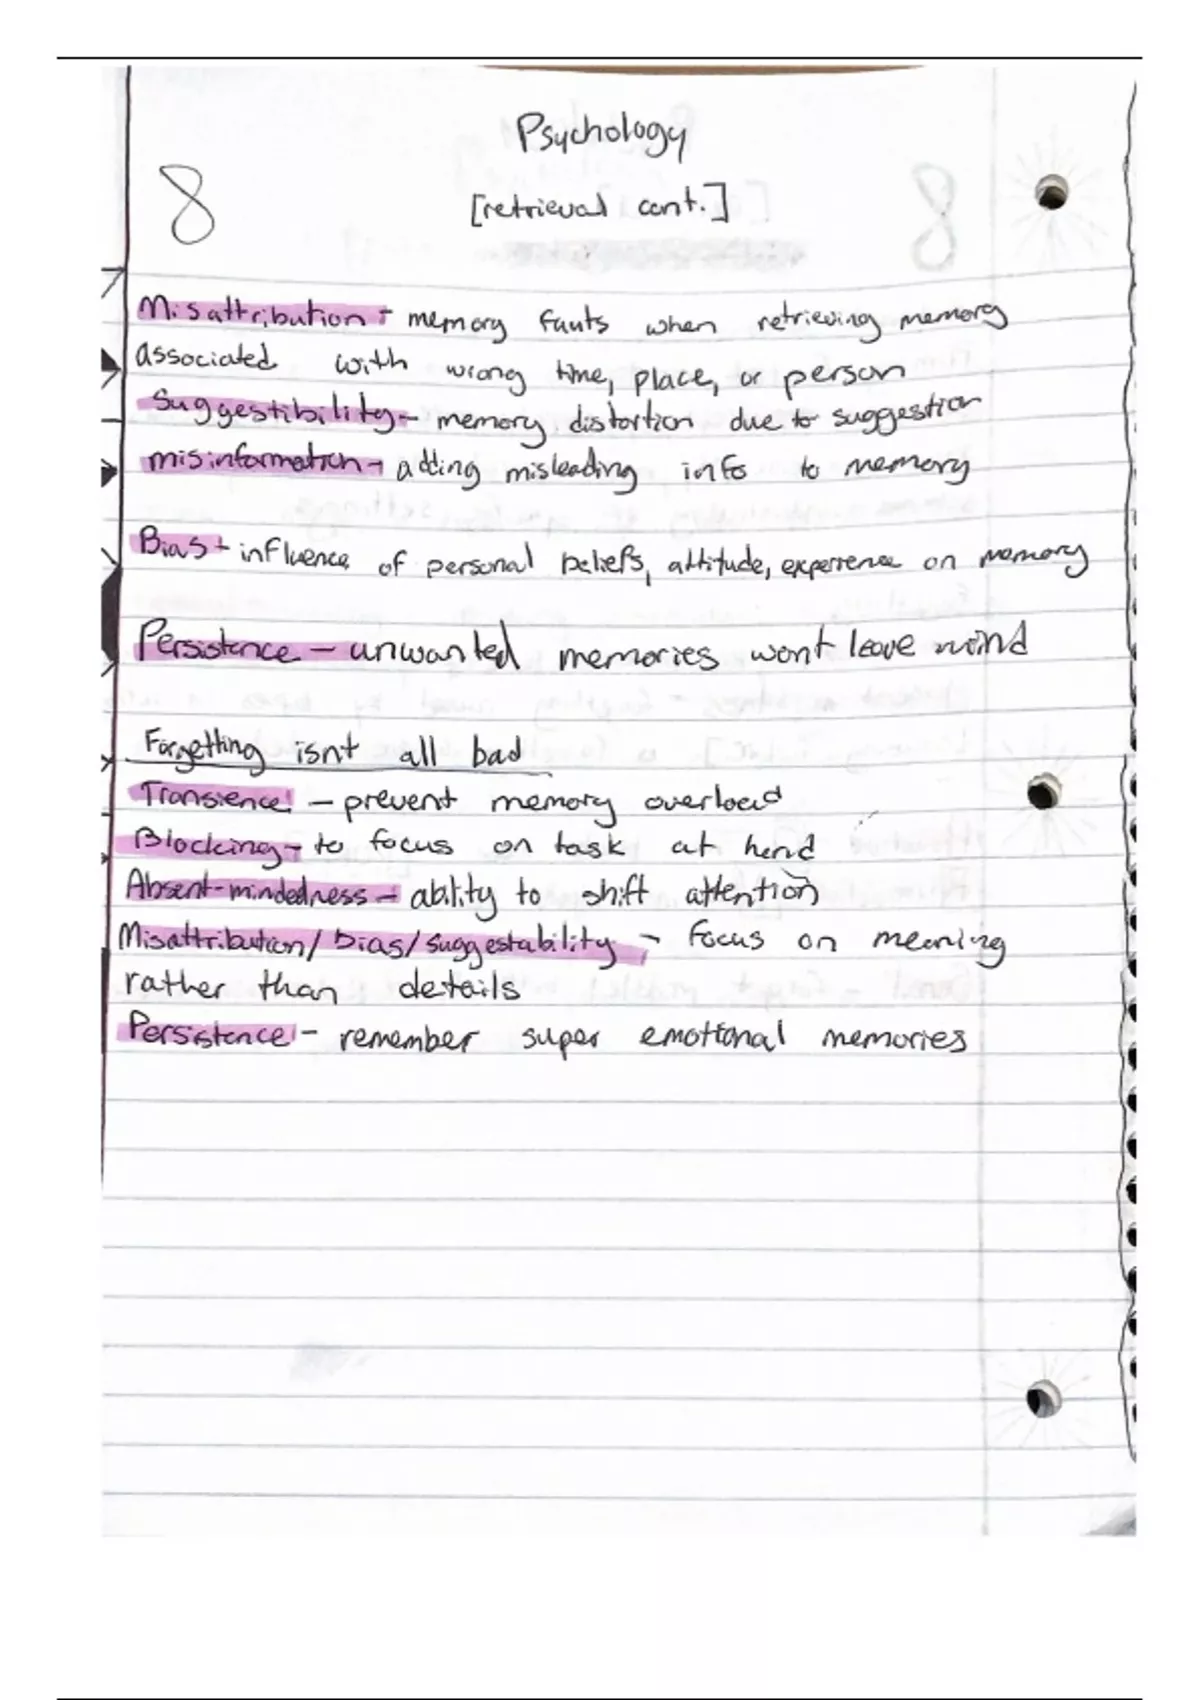 Psychology
8
[retrieval cont.]
Misattribution - memory faults when retrieving memory
associated with wrong time, place, or person
Suggestibility - memory distortion due to suggestion
misinformation - adding misleading info to memory
Bias - influence of personal beliefs, attitude, experience on memory
Persistence - unwanted memories wont leave mind
Forgetting isnt all bad
Transience - prevent memory overload
Blocking - to focus on task at hand
Absent-mindedness - ability to shift attention
Misattribution/bias/suggestability - focus on meaning
rather than details
Persistence - remember super emotional memories